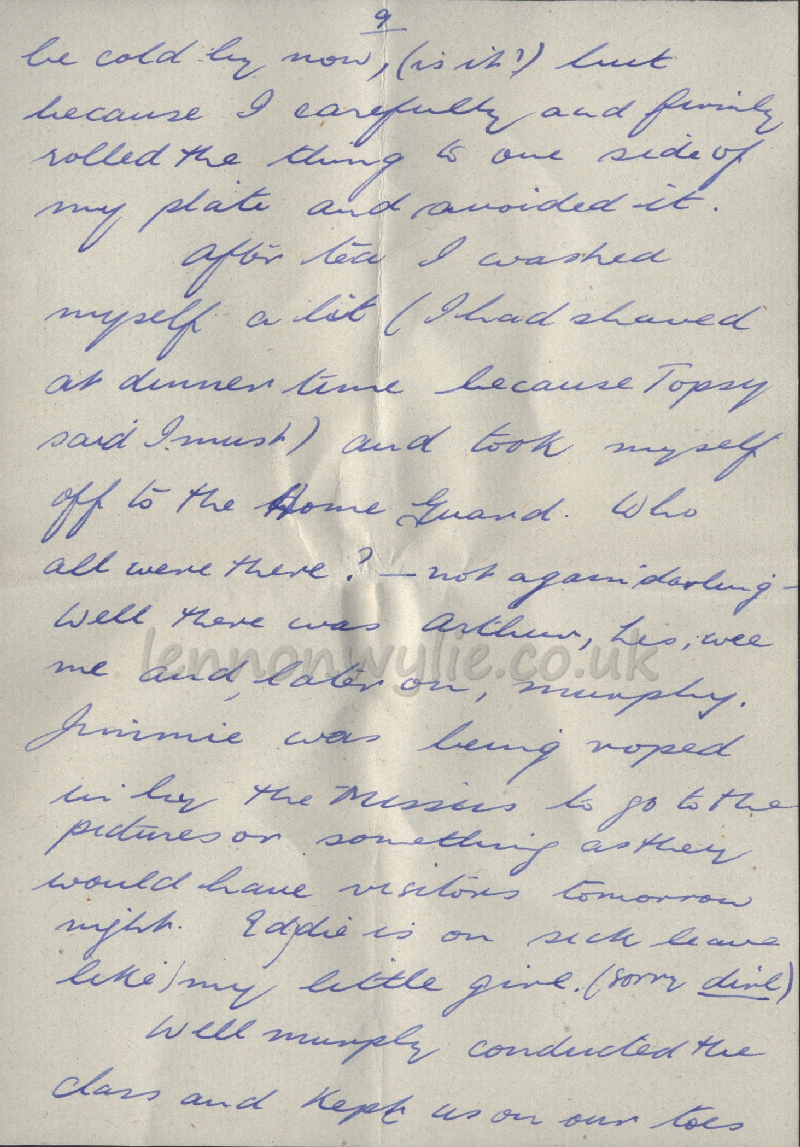 9
be cold by now, (is it?) but
because I carefully and firmly
rolled the thing to one side of
my plate and avoided it.
After tea I washed
myself a bit (I had shaved
at dinner time because Topsy
said I must) and took myself
off to the Home Guard. Who
all were there? — not again darling —
Well there was Arthur, Les, wee
me and, later on, Murphy.
Jimmie was being roped
in by the Missus to go to the
pictures or something as they
would have visitors tomorrow
night. Eddie is on sick leave
like my little girl. (sorry dirl)
Well Murphy conducted the
class and kept us on our toes
lennonwylie.co.uk